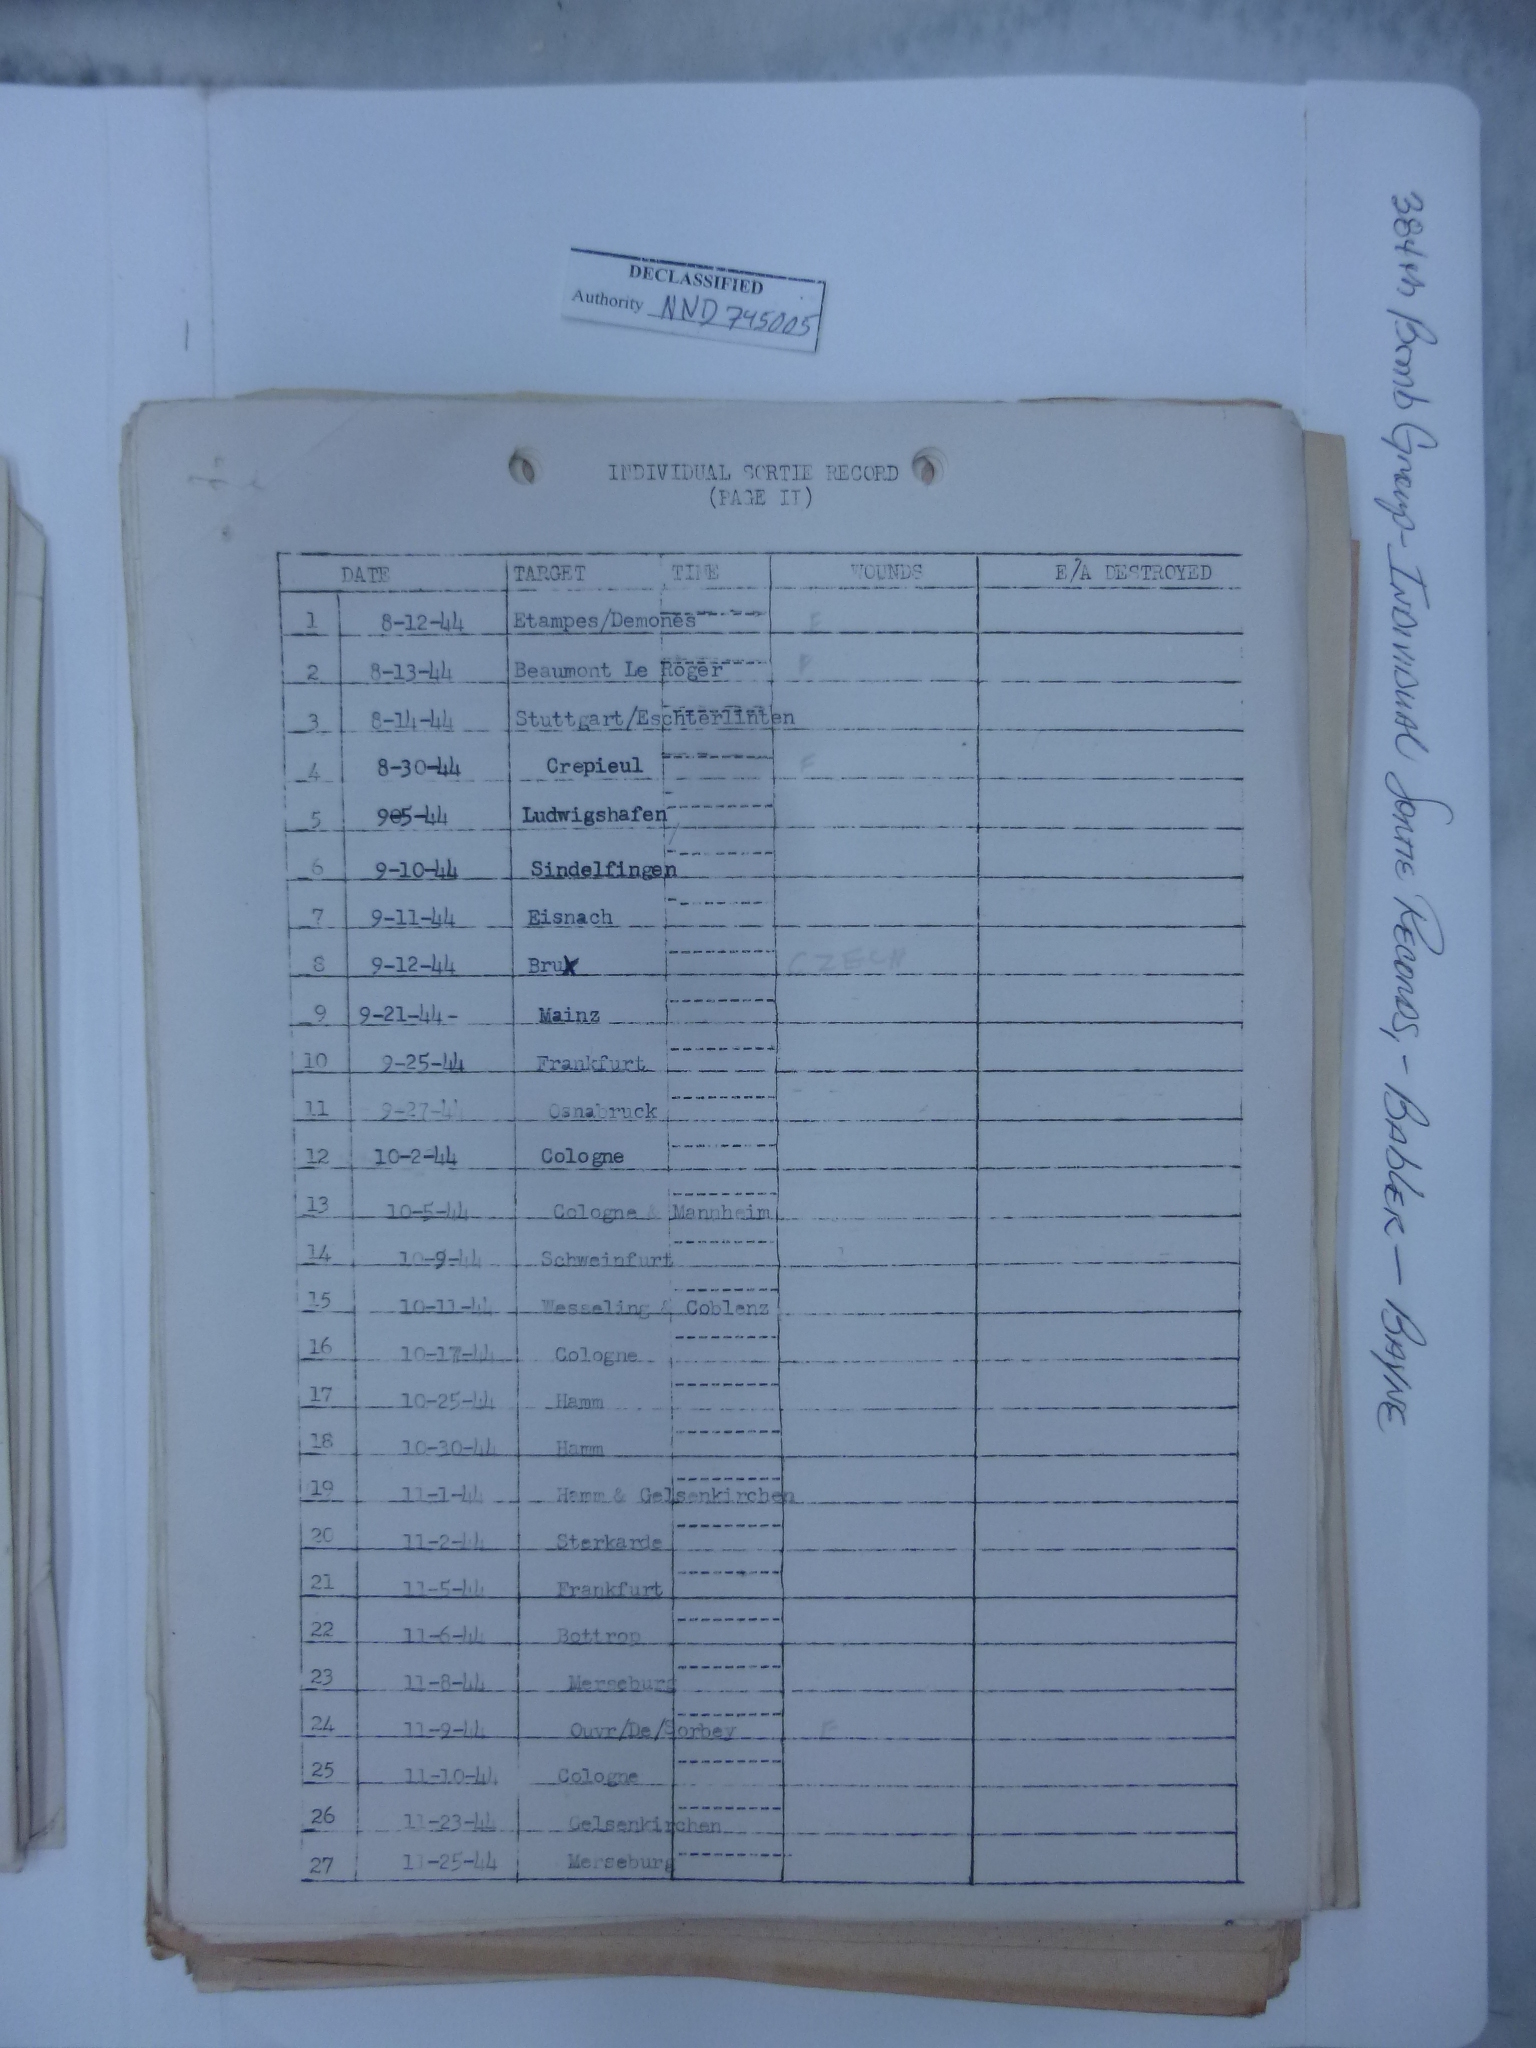 DECLASSIFIED
Authority NND 745005
384th Bomb Group - Individual Sortie Records, - Babler - Bayne
INDIVIDUAL SORTIE RECORD
(PAGE II)
DATE TARGET TIME WOUNDS E/A DESTROYED
1 8-12-44 Etampes/Demones F
2 8-13-44 Beaumont Le Roger F
3 8-14-44 Stuttgart/Eschterlinten
4 8-30-44 Crepieul F
5 9-5-44 Ludwigshafen
6 9-10-44 Sindelfingen
7 9-11-44 Eisnach
8 9-12-44 Brux CZECH
9 9-21-44- Mainz
10 9-25-44 Frankfurt
11 9-27-44 Osnabruck
12 10-2-44 Cologne
13 10-5-44 Cologne & Mannheim
14 10-9-44 Schweinfurt
15 10-11-44 Wesseling & Coblenz
16 10-17-44 Cologne
17 10-25-44 Hamm
18 10-30-44 Hamm
19 11-1-44 Hamm & Gelsenkirchen
20 11-2-44 Sterkarde
21 11-5-44 Frankfurt
22 11-6-44 Bottrop
23 11-8-44 Merseburg
24 11-9-44 Ouvr/De/Sorbey F
25 11-10-44 Cologne
26 11-23-44 Gelsenkirchen
27 11-25-44 Merseburg